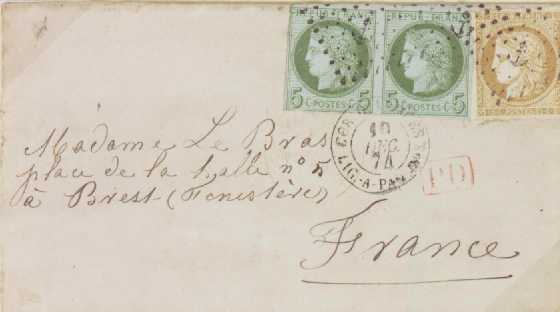 REPUB. FRANC. REPUB. FRANC.
5 C. POSTES C. 5 5 C. POSTES C. 5
10
DEC.
74
LIG. A
PD
Madame Le Bras
place de la halle n° 5
à Brest (Finistère)
France